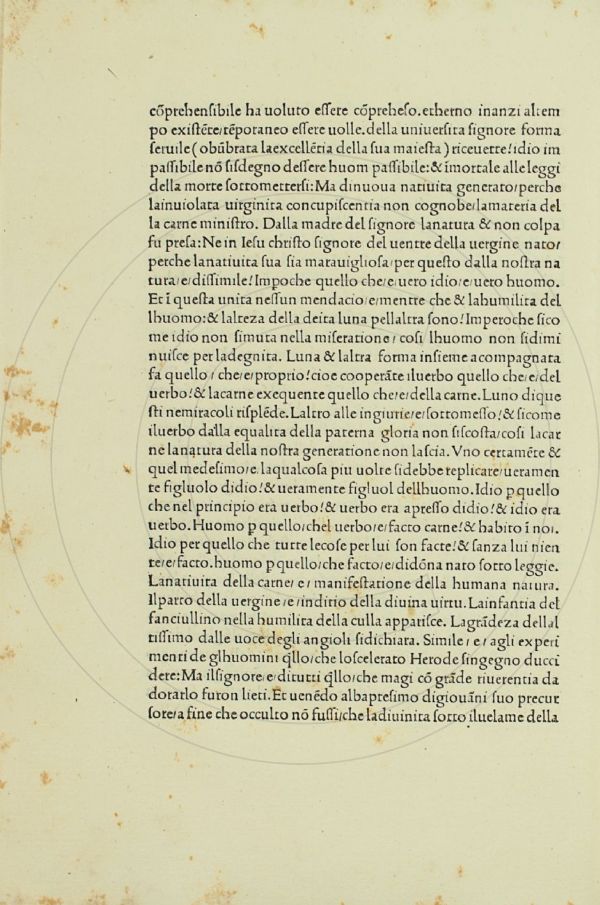 cōprehenſibile ha uoluto eſſere cōpreheſo.etherno inanzi altem
po exiſtēte/tēporaneo eſſere uolle.della uniuerſita ſignore forma
ſeruile (obūbrata laexcellētia della ſua maieſta) riceuette!idio im
paſſibile nō ſiſdegno deſſere huom paſſibile:& īmortale alle leggi
della morte ſottometterſi:Ma dinuoua natiuita generato/perche
lainuiolata uirginita concupiſcentia non cognobe/lamateria del
la carne miniſtro. Dalla madre del ſignore lanatura & non colpa
fu preſa:Ne in Ieſu chriſto ſignore del uentre della uergine nato/
perche lanatiuita ſua ſia marauiglioſa/per queſto dalla noſtra na
tura/e/diſſimile!Impoche quello che/e/uero idio/e/uero huomo.
Et ī queſta unita neſſun mendacio/e/mentre che & lahumilita del
lhuomo:& lalteza della deita luna pellaltra ſono!Imperoche ſico
me idio non ſimuta nella miſeratione/ coſi lhuomo non ſidimi
nuiſce per ladegnita. Luna & laltra forma inſieme acompagnata
fa quello / che/e/proprio!cioe cooperāte iluerbo quello che/e/del
uerbo!& lacarne exequente quello che/e/della carne. Luno dique
ſti nemiracoli riſplēde.Laltro alle ingiurie/e/ſottomeſſo!& ſicome
iluerbo dalla equalita della paterna gloria non ſiſcoſta/coſi lacar
ne lanatura della noſtra generatione non laſcia. Vno certamēte &
quel medeſimo/e. laqualcoſa piu uolte ſidebbe replicare/ueramen
te figluolo didio!& ueramente figluol dellhuomo. Idio p quello
che nel principio era uerbo!& uerbo era apreſſo didio!& idio era
uerbo. Huomo p quello/chel uerbo/e/facto carne!& habito ī noi.
Idio per quello che tutte lecoſe per lui ſon facte!& ſanza lui nien
te/e/facto.huomo p quello/che facto/e/didōna nato ſotto leggie.
Lanatiuita della carne/ e / manifeſtatione della humana natura.
Ilparto della uergine/e/inditio della diuina uirtu. Lainfantia del
fanciullino nella humilita della culla appariſce. Lagrādeza dellal
tiſſimo dalle uoce degli angioli ſidichiara. Simile / e / agli experi
menti de glhuomini q̄llo/che loſcelerato Herode ſingegno ducci
dere:Ma ilſignore/e/ditutti q̄llo/che magi cō grāde riuerentia da
dorarlo furon lieti.Et uenēdo albapteſimo digiouāni ſuo precur
ſore/a fine che occulto nō fuſſi/che ladiuinita ſotto iluelame della